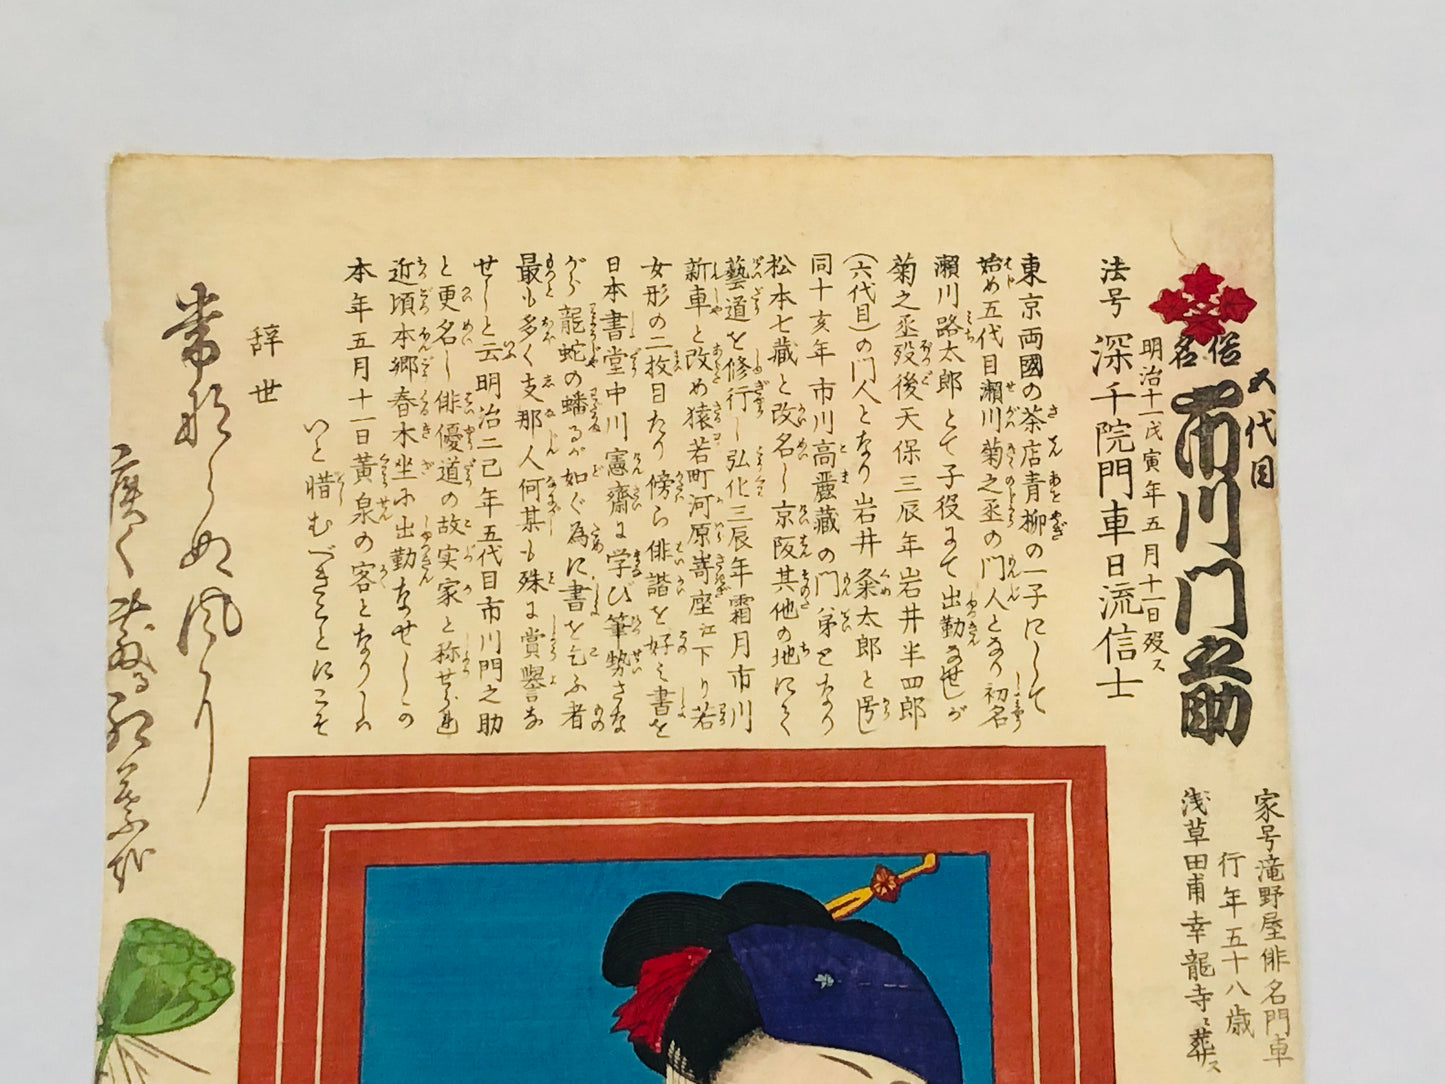 俗名
五代目
市川門之助
明治十一戊寅年五月十一日歿ス
法号 深千院門車日流信士
家号滝野屋俳名門車
行年五十八歳
浅草田甫幸龍寺ニ葬ス
東京両國の茶店青柳の一子にして
始め五代目瀬川菊之丞の門人となり初名
瀬川路太郎とて子役にて出勤なせしが
菊之丞歿後天保三辰年岩井半四郎
(六代目)の門人となり岩井粂太郎と号し
同十亥年市川高麗藏の門弟となり
松本七藏と改名し京阪其他の地にて
藝道を修行し弘化三辰年霜月市川
新車と改め猿若町河原嵜座江下り若
女形の二枚目たり傍ら俳諧を好み書を
日本書堂中川憲齋に学び筆勢さな
がら龍蛇の蟠るが如く為に書を乞ふ者
最も多く支那人何某も殊に賞譽な
せしと云明治二己年五代目市川門之助
と更名し俳優道の故実家と称せられ
近頃本郷春木坐に出勤なせしが
本年五月十一日黄泉の客となりしハ
いと惜むべきことにこそ
辞世
常ならぬ風